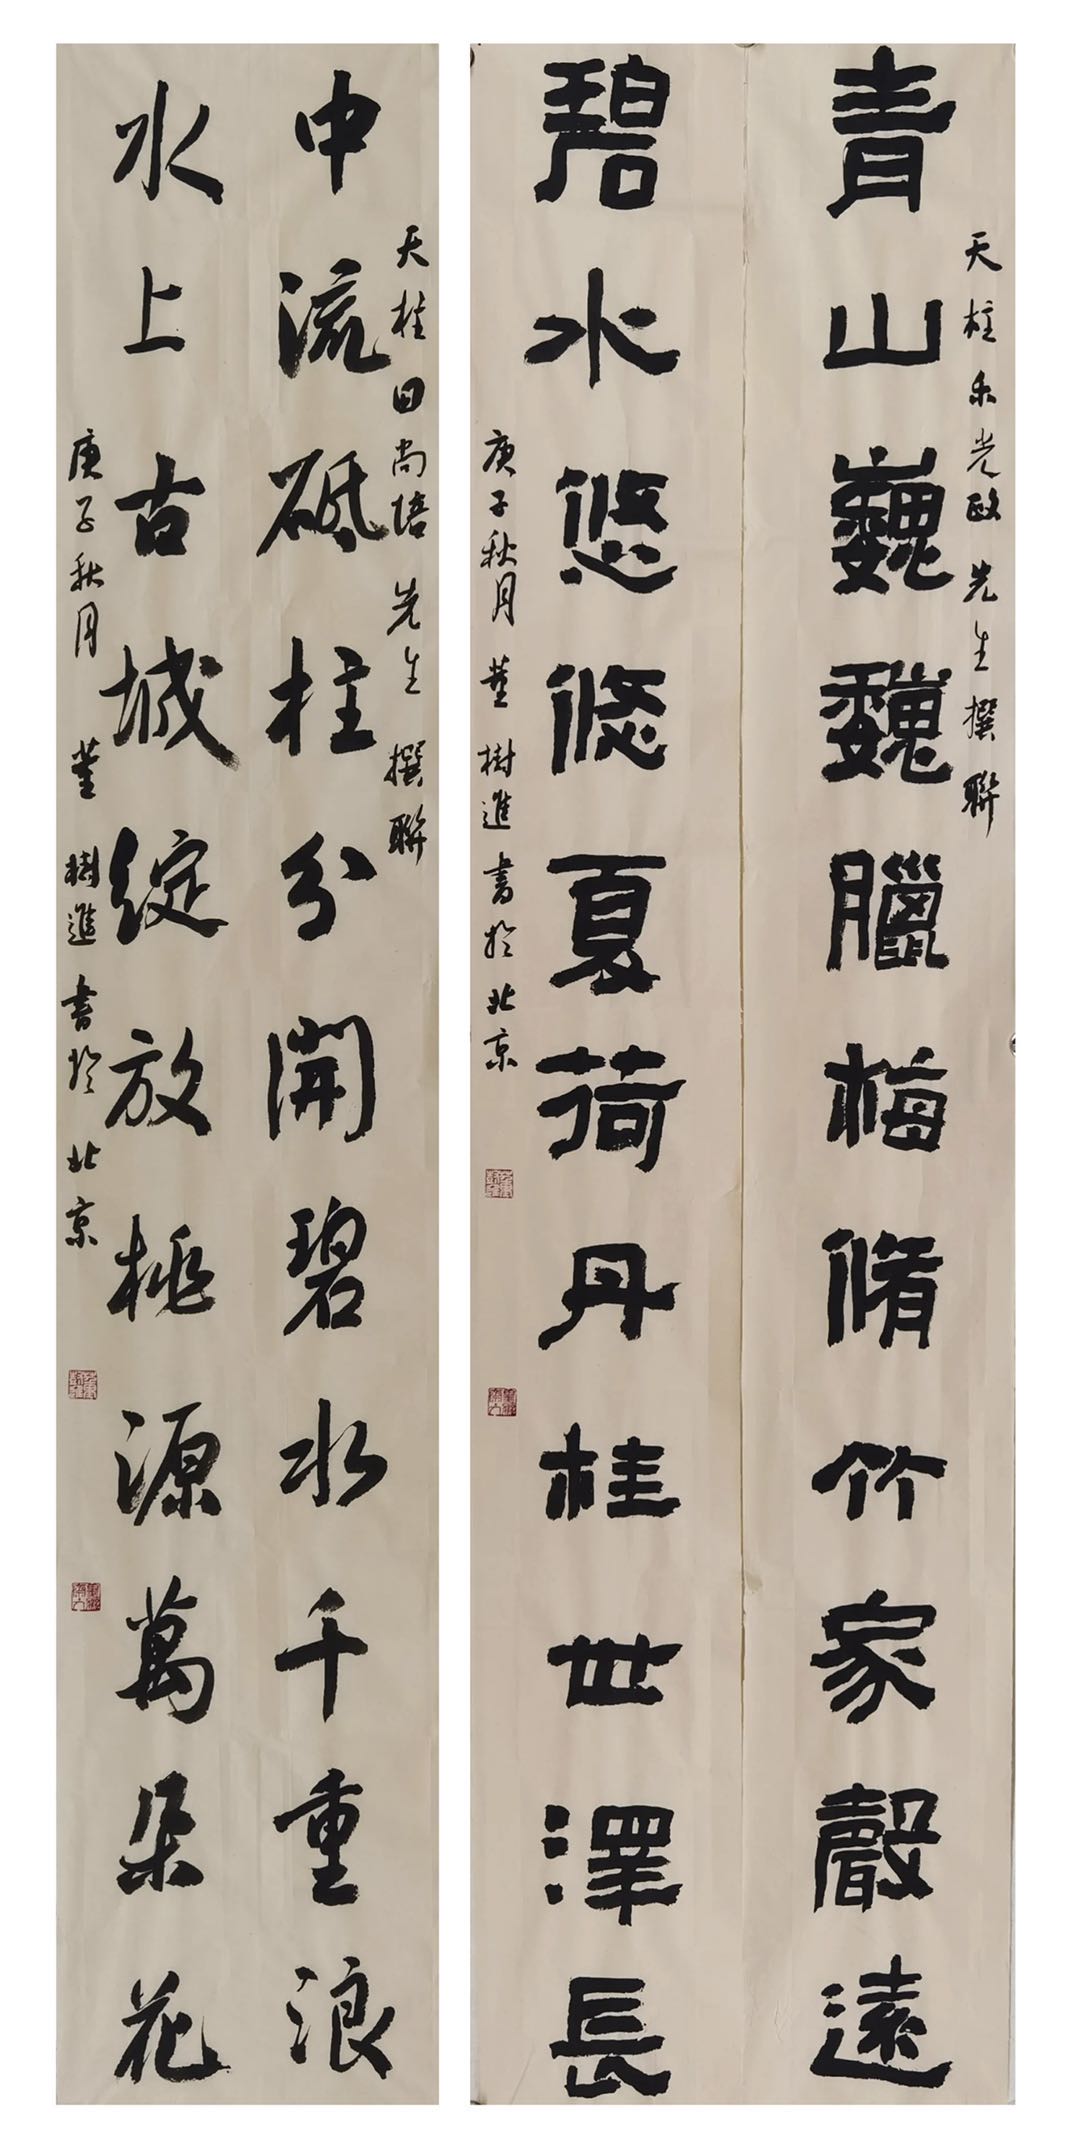 天柱乐光政先生撰聯
青山巍巍臘梅脩竹家聲遠
碧水悠悠夏荷丹桂世澤長
庚子秋月董樹進書於北京
天柱田尚培先生撰聯
中流砥柱分開碧水千重浪
水上古城綻放桃源萬朵花
庚子秋月董樹進書於北京